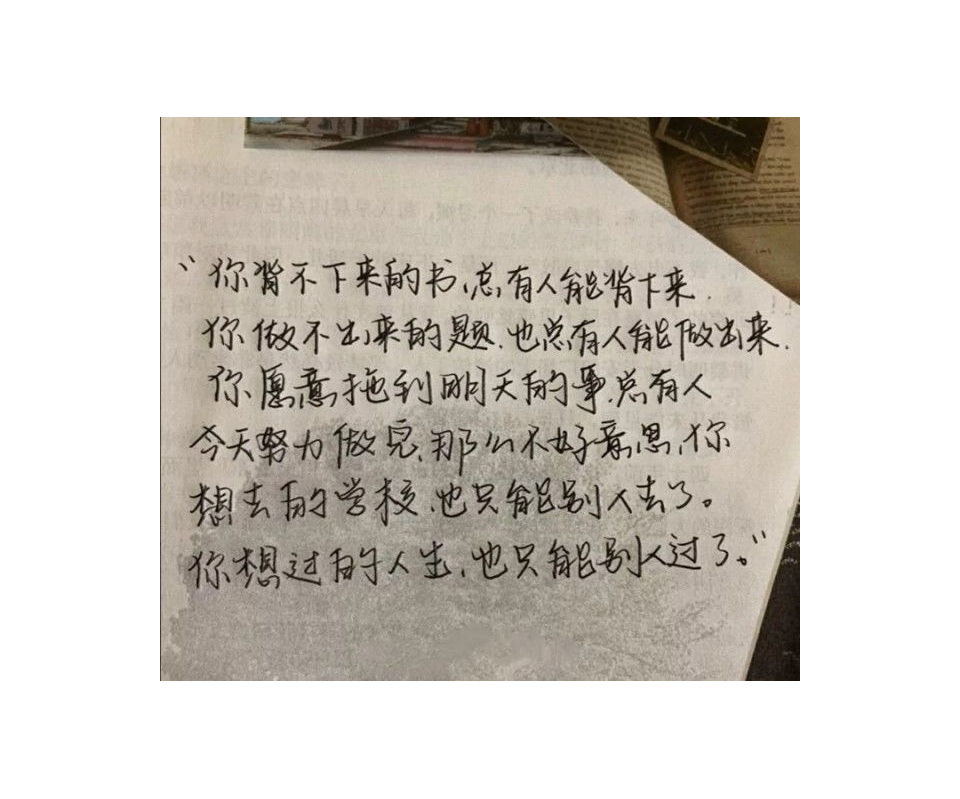 “你背不下来的书,总有人能背下来.
你做不出来的题.也总有人能做出来.
你愿意拖到明天的事.总有人
今天努力做完.那么不好意思,你
想去的学校.也只能别人去了。
你想过的人生,也只能别人过了。”